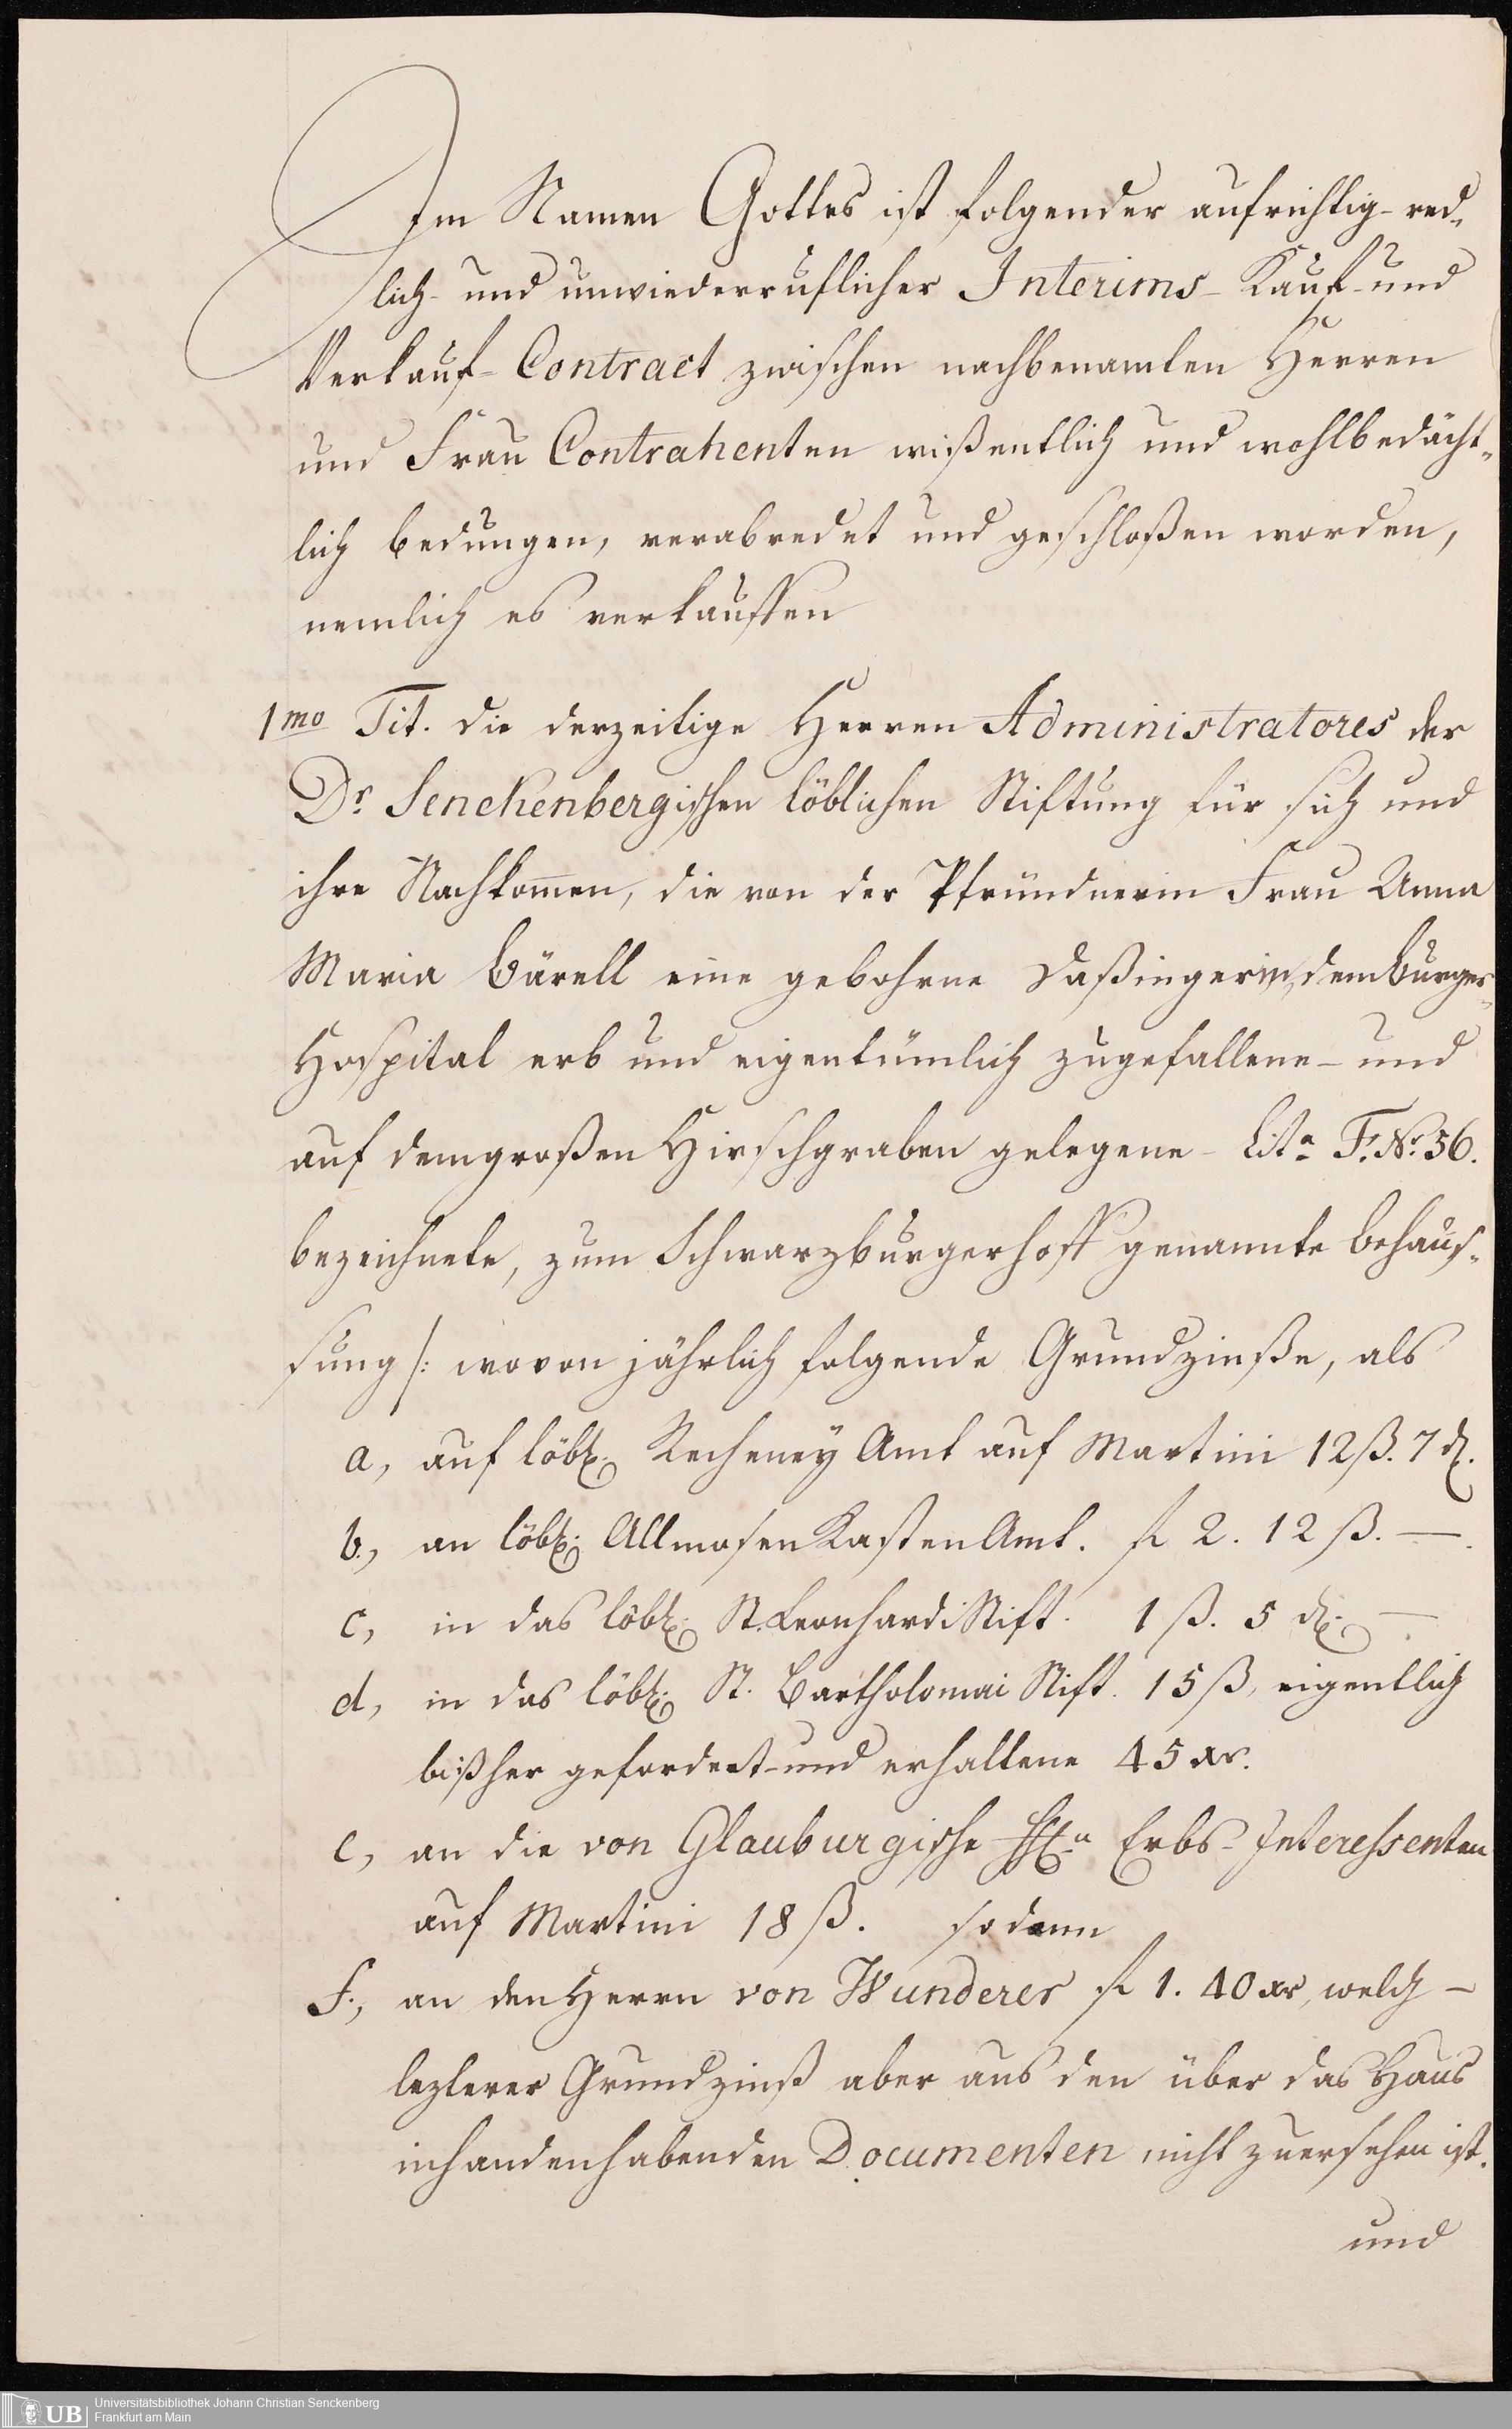 Im Namen Gottes ist folgender aufrichtig-red-
lich- und unwiederruflicher Interims-Kauf-und
Verkauf-Contract zwischen nachbenamten Herren
und Frau Contrahenten wißentlich und wohlbedächt-
lich bedungen, verabredet und geschloßen worden,
nemlich es verkauffen
1mo Tit. die derzeitige Herren Administratores der
Dr. Senckenbergischen löblichen Stiftung für sich und
ihre Nachkom̄en, die von der Pfründnerin Frau Anna
Maria Bärell eine gebohrne Daßingerin, dem Burger-
Hospital erb und eigentümlich zugefallene- und
auf dem großen Hirschgraben gelegene- Lita F. No. 56.
bezeichnete, zum Schwarzburgerhoff genannte Behaus-
sung /: wovon jährlich folgende Grundzinße, als
a, auf löbl. Recheney Amt auf Martini 12 ß. 7 d.
b., an löbl. Allmosen Kasten Amt. f 2. 12 ß. —.
c, in das löbl. St. Leonhardi Stift. 1 ß. 5 d. —
d, in das löbl. St. Bartholomäi Stift. 15 ß, eigentlich
bißher gefordert-und erhaltene 45 xr.
e, an die von Glauburgische Erbs-Interessenten
auf Martini 18 ß. sodann
f., an den Herrn von Wunderer f 1. 40 xr, welch-
lezterer Grundzinß aber aus den über das Haus
inhandenhabenden Documenten nicht zuersehen ist.
und
UB Universitätsbibliothek Johann Christian Senckenberg
Frankfurt am Main